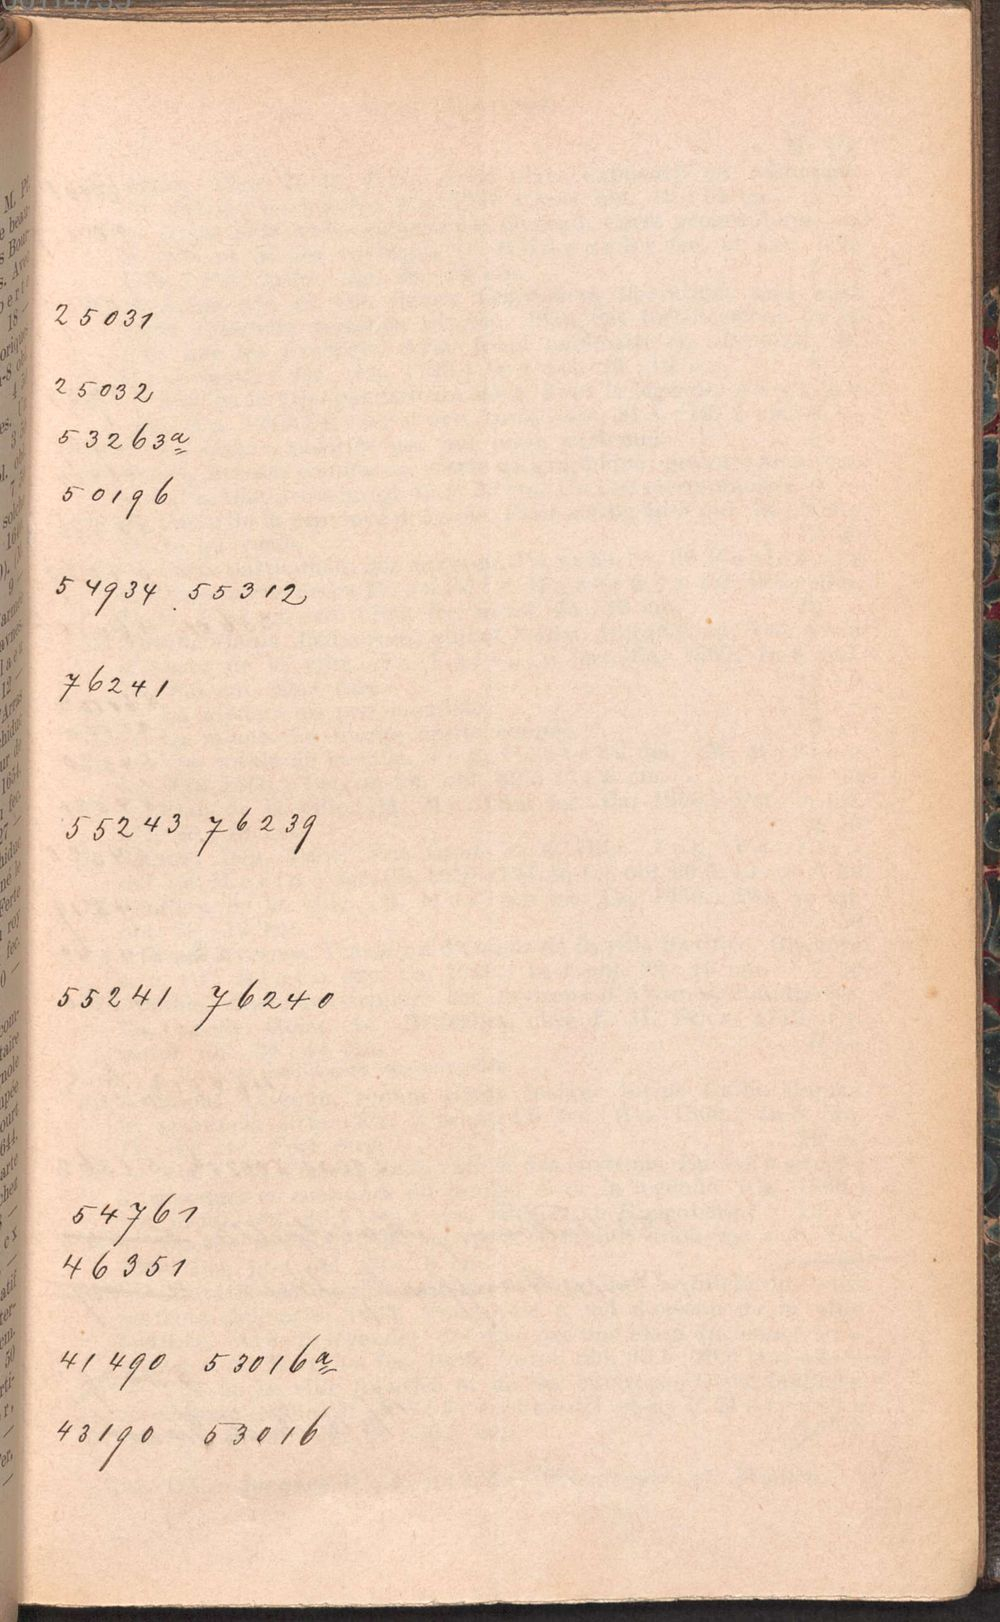 25031
25032
53263a
50196
54934 55312
76241
55243 76239
55241 76240
54761
46351
41490 53016a
43190 53016